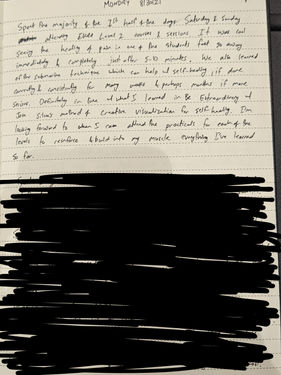 MONDAY 8/30/21
Spent the majority of the 1st half of the days Saturday & Sunday
attending Level 2 courses & sessions. It was cool
seeing the healing of pain in one of the students feet go away
immediately & completely just after 5-10 minutes. We also learned
of the submarine technique which can help w/ self-healing if done
correctly & consistently for many weeks & perhaps months if more
severe. Definitely in line w/ what I learned in Be Extraordinary w/
Jose Silva's method of creative visualization for self healing. I'm
looking forward to when I can attend the practicals for each of the
levels to reinforce & build into my muscle everything I've learned
so far.